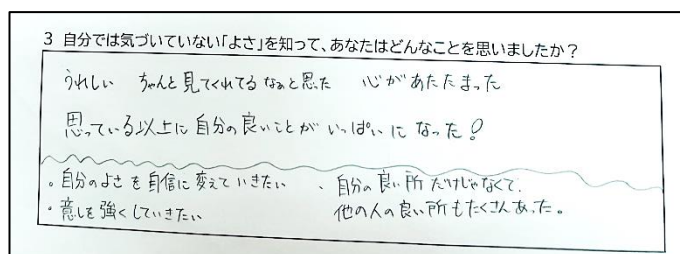 3 自分では気づいていない「よさ」を知って、あなたはどんなことを思いましたか？
うれしい ちゃんと見てくれてるなぁと思った 心があたたまった
思っている以上に自分の良いことがいっぱいになった!
。自分のよさを自信に変えていきたい
・意しを強くしていきたい
・自分の良い所だけじゃなくて、
他の人の良い所もたくさんあった。